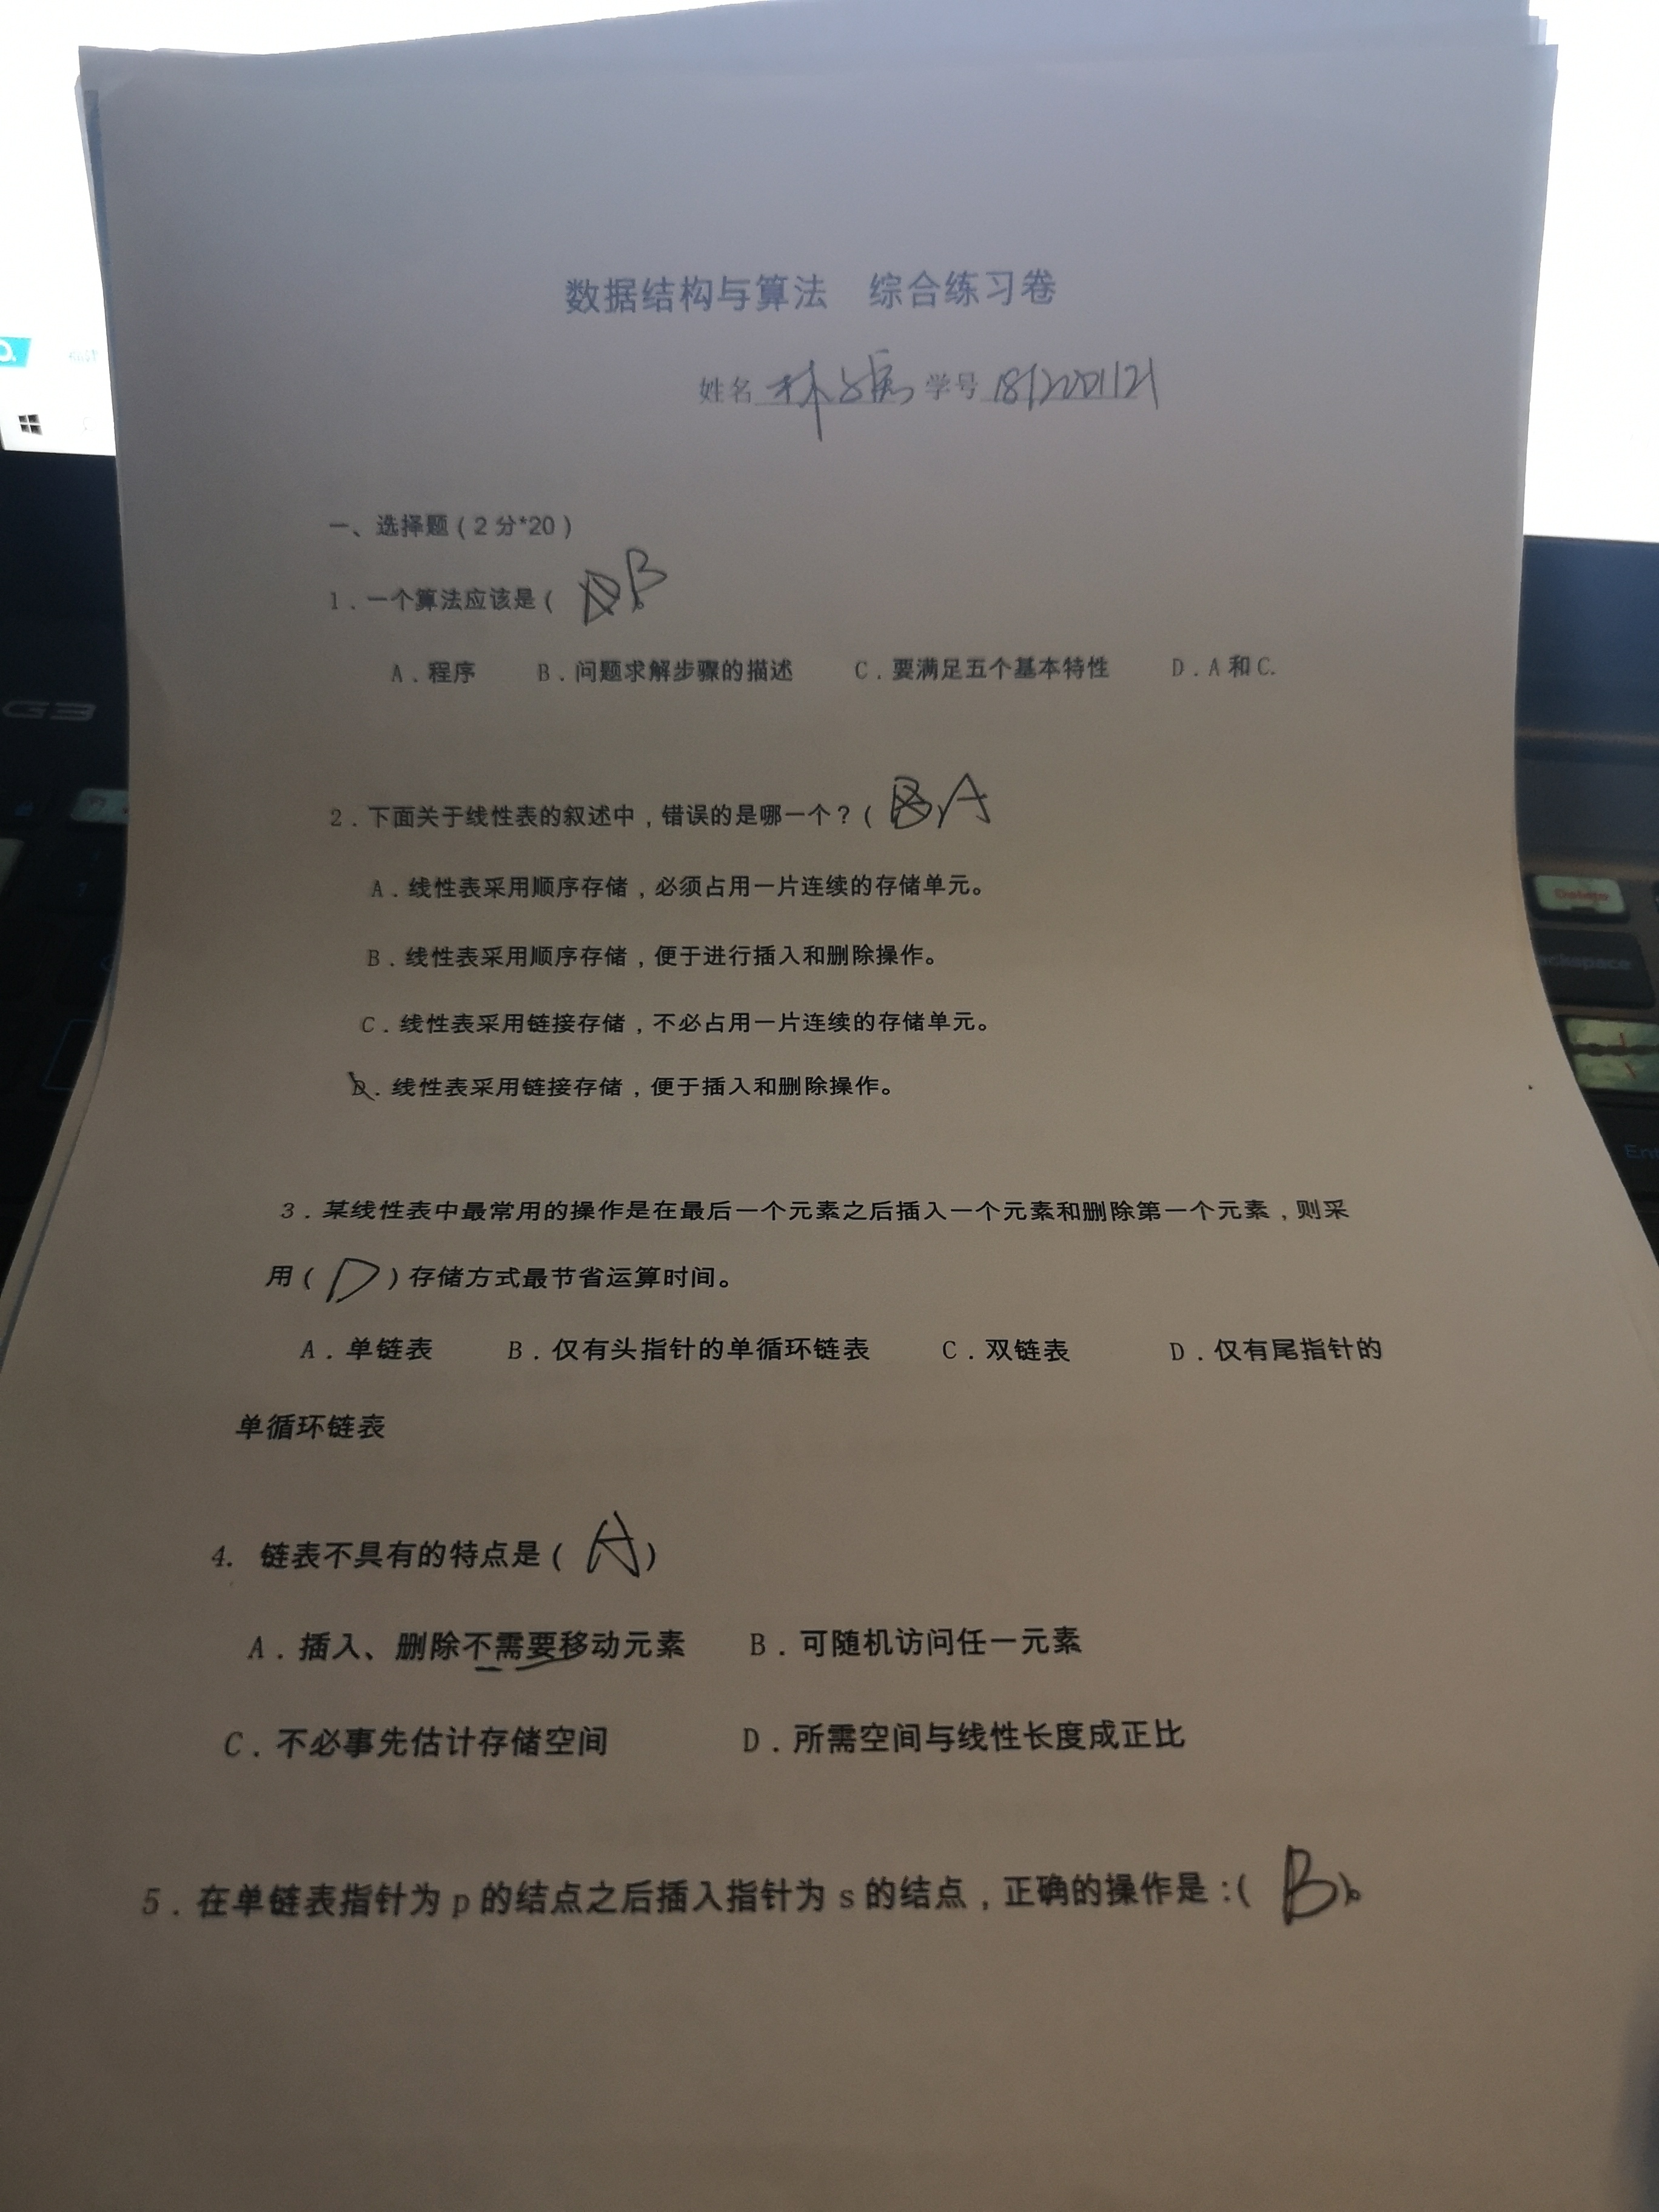 数据结构与算法 综合练习卷
姓名 林 学号 181200121
一、选择题（2 分*20）
1．一个算法应该是（ B
A．程序 B．问题求解步骤的描述 C．要满足五个基本特性 D．A 和 C.
2．下面关于线性表的叙述中，错误的是哪一个？（ B A
A．线性表采用顺序存储，必须占用一片连续的存储单元。
B．线性表采用顺序存储，便于进行插入和删除操作。
C．线性表采用链接存储，不必占用一片连续的存储单元。
D．线性表采用链接存储，便于插入和删除操作。
3．某线性表中最常用的操作是在最后一个元素之后插入一个元素和删除第一个元素，则采
用（ D ）存储方式最节省运算时间。
A．单链表 B．仅有头指针的单循环链表 C．双链表 D．仅有尾指针的
单循环链表
4. 链表不具有的特点是（ A ）
A．插入、删除不需要移动元素 B．可随机访问任一元素
C．不必事先估计存储空间 D．所需空间与线性长度成正比
5．在单链表指针为 p 的结点之后插入指针为 s 的结点，正确的操作是：( B )。
G3
Delete
ackspace